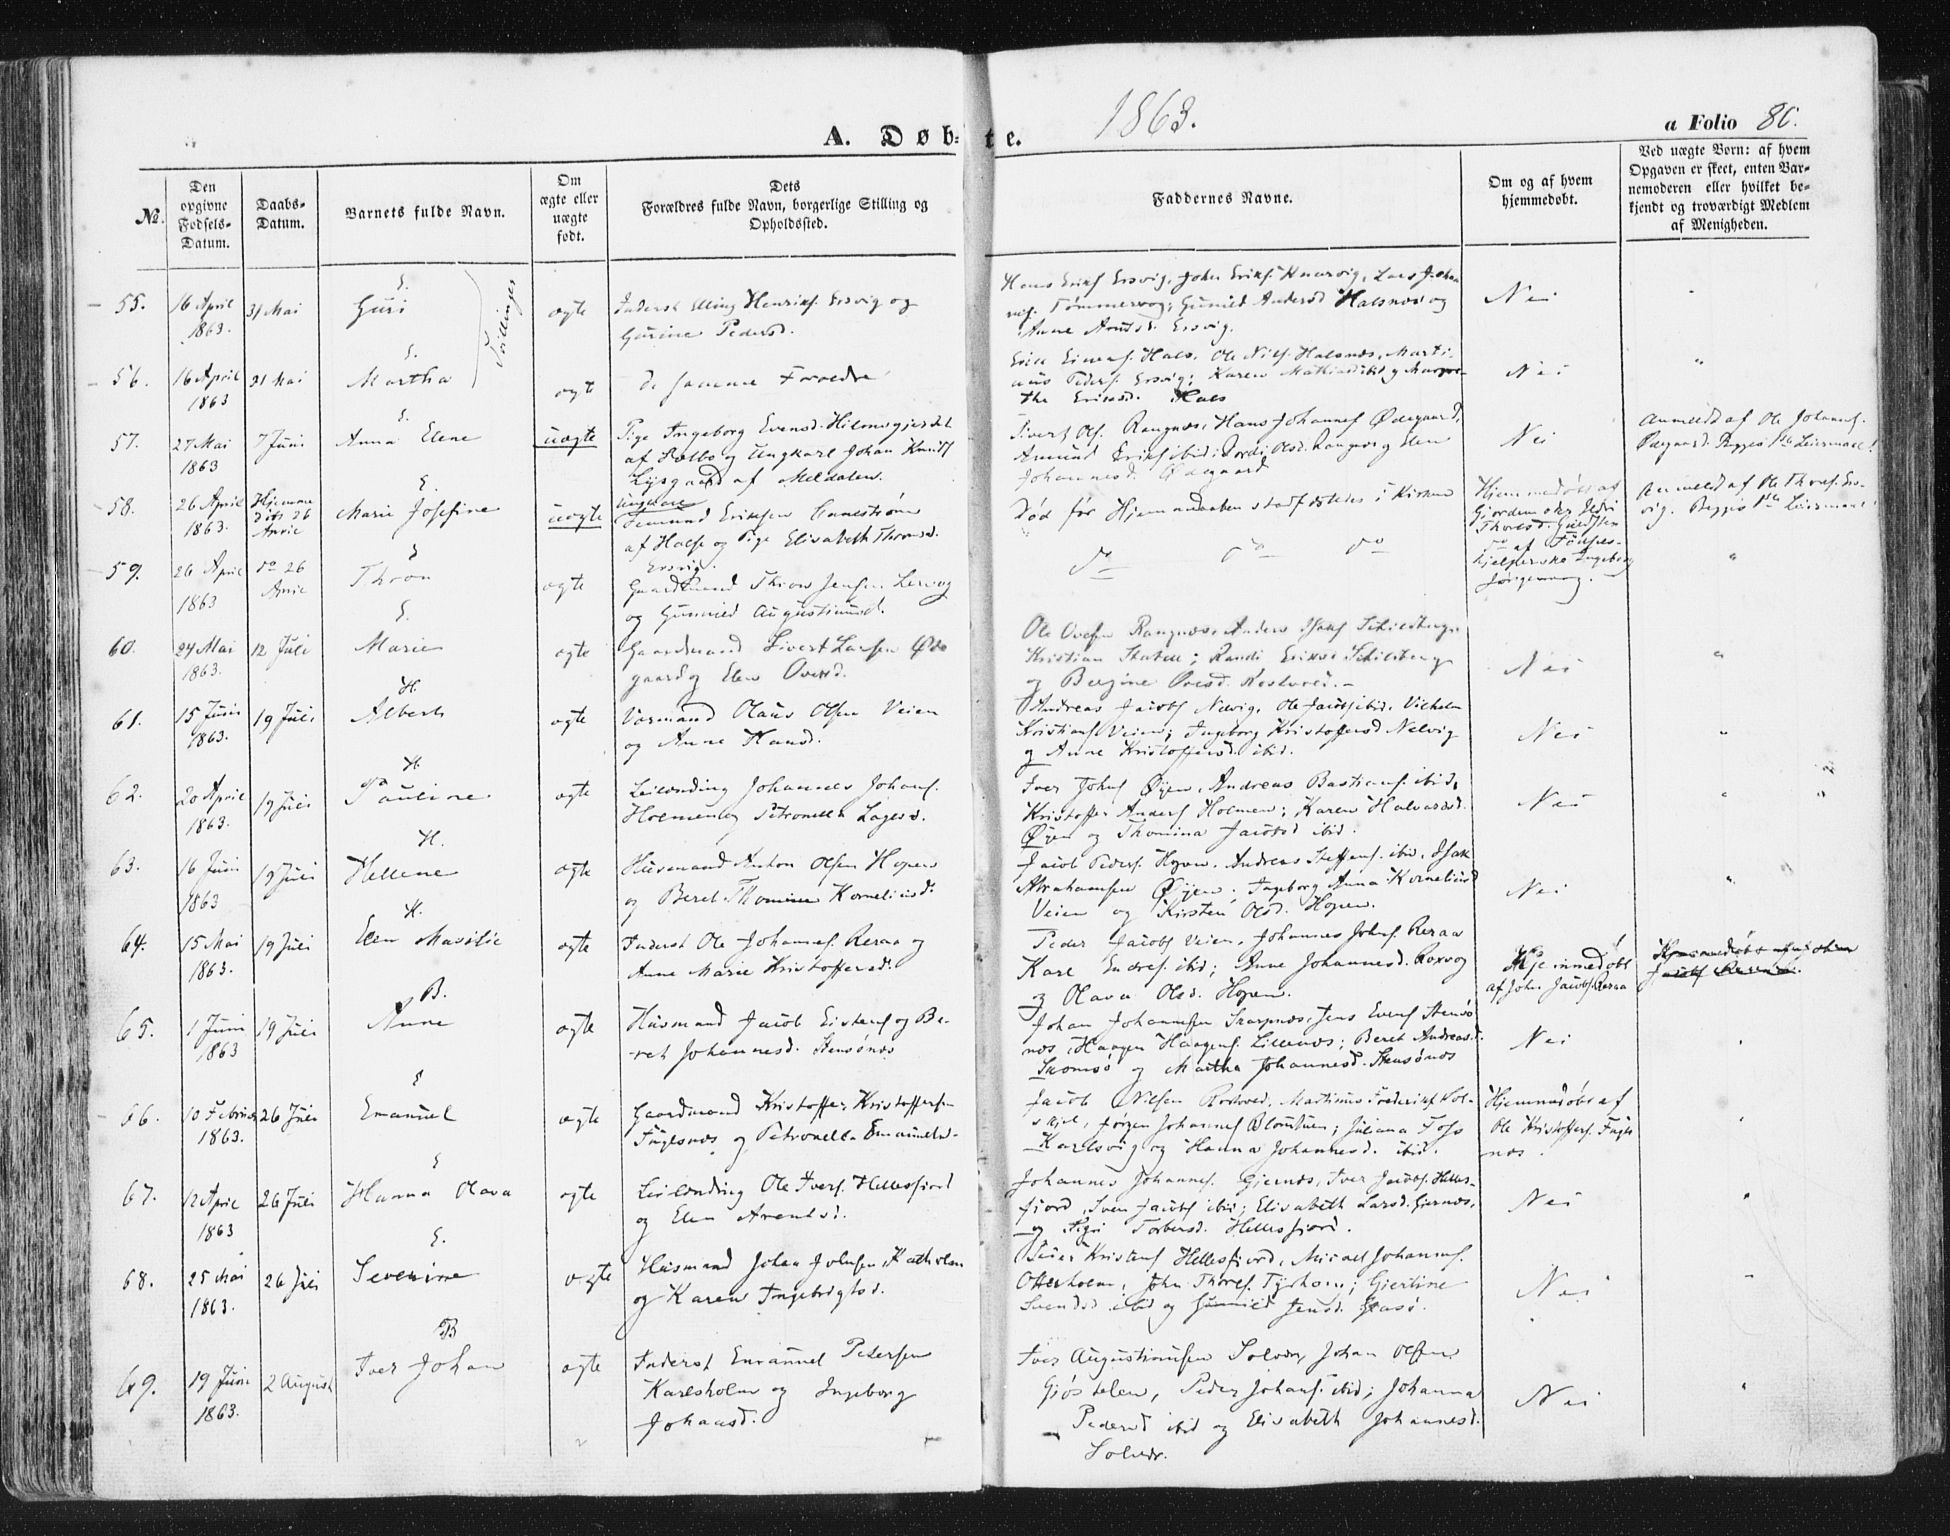 1863.
A. Døbte.
a Folio 80.
No.
Den opgivne Fødsels-Datum.
Daabs-Datum.
Barnets fulde Navn.
Om ægte eller uægte født.
Dets Forældres fulde Navn, borgerlige Stilling og Opholdssted.
Faddernes Navne.
Om og af hvem hjemmedøbt.
Ved uægte Børn: af hvem Opgaven er skeet, enten Barnemoderen eller hvilket bekjendt og troværdigt Medlem af Menigheden.
Tvillinger
55. 16 April 1863. 31 Mai E. Guri ægte
Inderst Elling Henriks. Ersvig og
Gurine Pedersd.
Hans Eriks. Ersvig, John Eriks. Knarvig, Lars Johan
nes. Tømmervog; Gunild Andersd Halsnæs og
Anne Arntsd. Ersvig.
Nei
56. 16 April 1863 31 Mai E. Martha ægte
de samme Forældre
Erik Einars. Hals, Ole Niels. Halsnæs, Marti-
nus Peders. Ersvig; Karen Mathiasd ibid og Margre-
the Eriksd. Hals
Nei
57. 27 Mai 1863 7 Juni E. Anna Elene uægte
Pige Ingeborg Evensd. Hilmogjerdet
af Rælbo og Ungkarl Johan Knuds
Lysgaard af Meldalen.
Sivert Ols. Rangnæs, Hans Johannes. Ødegaard,
Amund Eriks ibid; Jordi Olsd. Rangnæs og Elen
Johannesd. Ødegaard
Nei
Anmeldt af Ole Johannes.
Ødegaard. Begges 1ste Leiermaal!
58. 26 April 1863. Hjemme døbt 26 April E. Marie Josefine uægte
Ungkarl
Edmund Eriksen Cannestrøm
af Halse og Pige Elisabeth Thronsd.
Ersvig.
Død før Hjemmedaaben stadfæstetes i Kirken
Hjemmedøbt af
Gjordemoder Guri
Thoresd.
Anmeldt af Ole Throns. Ers-
vig. Begges 1ste Leiermaal!
59. 26 April 1863 do 26 April E Thron ægte
Gaardmand Thron Jensen Lervog
og Gunnild Augustinusd.
do do do
do af Fødsels-
hjelperske Ingeborg
Jørgenvog.
60. 24 Mai 1863. 12 Juli E. Marie ægte
Gaardmand Sivert Larsen Øde
gaard og Elen Oversd.
Ole Ovesen Rangnæs, Anders Isaks Schilsberg,
Kristian Staten; Randi Eriksd Schilsberg
og Bergine Ovesd. Rostvred.
Nei
61. 15 Juni 1863. 19 Juli H. Albert ægte
Vormand Olaus Olsen Veien
og Anne Hansd.
Andreas Jacobs Nelvig, Ole Jacobs ibid. Vilhelm
Kristians Veien; Ingeborg Kristoffersd Nelvig
og Anne Kristoffersd. ibid.
Nei
62. 20 April 1863. 19 Juli H. Pauline ægte
Leilænding Johannes Johans.
Holmen og Petronella Lagesd.
Iver Johns Øyen, Andreas Bastians. ibid,
Kristoffer Anders Holmen; Karen Halvardsd.
Øyen og Thomina Jacobsd ibid.
Nei
63. 16 Juni 1863 19 Juli H. Hellene ægte
Husmand Anton Olsen Hopen
og Beret Thomine Korneliusd.
Jacob Peders. Hopen, Andreas Steffens. ibid, Isak
Abrahamsen Øyen; Ingeborg Anna Korneliusd
Veien og Kirsten Olsd. Hopen.
Nei
64. 15 Mai 1863. 19 Juli H. Elen Masilie ægte
Inderst Ole Johannes. Reraa og
Anne Marie Kristoffersd.
Peder Jacobs Veien, Johannes Johns. Reraa
Karl Endres. ibid; Anne Johannesd. Roxvog
og Olava Olsd. Hopen.
Hjemmedøbt
af John Jacobs. Reraa
Hjemmedøbt af John
Jacobs Reraa.
65. 1 Juni 1863 19 Juli B. Anne ægte
Husmand Jacob Eistens og Be-
ret Johannesd. Stensønæs
Johan Johannesen Skarpnæs, Jens Evens Stensø
næs, Haagen Haagens. Lillenæs; Beret Andreasd.
Skomsø og Martha Johannesd. Stensønæs
Nei
66. 10 Februar 1863. 26 Juli E Emanuel ægte
Gaardmand Kristoffer Kristoffersen
Fuglsnæs og Petronella Emanuelsd.
Jacob Nilsen Rostvred, Martinus Frederiks Sol-
skjel, Jørgen Johannes Blomtuen; Juliana Foss
Karlsvig og Hanna Johannesd. ibid.
Hjemmedøbt af
Ole Kristoffers. Fugls
næs.
67. 12 April 1863 26 Juli E Hanna Olava ægte
Leilænding Ole Ivers. Hellesfjord
og Elen Arentsd.
Johannes Johannes. Gjernæs, Iver Jacobs. Helles-
fjord, Sven Jacobs ibid; Elisabeth Larsd. Gjernæs,
og Sigri Torbersd. Hellesfjord.
Nei
68. 25 Mai 1863. 26 Juli E. Severine ægte
Husmand Johan Johnsen Katholm
og Karen Ingebrigtsd.
Peder Kristens Hellesfjord, Micael Johannes.
Otterholm, John Thores. Tyrhom; Gjertine
Svendsd ibid og Gunnild Jensd. Grasø.
Nei
69. 19 Juni 1863. 2 August B Iver Johan ægte
Inderst Emanuel Petersen
Karlsholm og Ingeborg
Johansd.
Iver Augustinusen Solvær, Johan Olsen
Gjøstølen, Peder Johans. ibid; Johanna
Pedersd ibid og Elisabeth Johannesd.
Solvær.
Nei